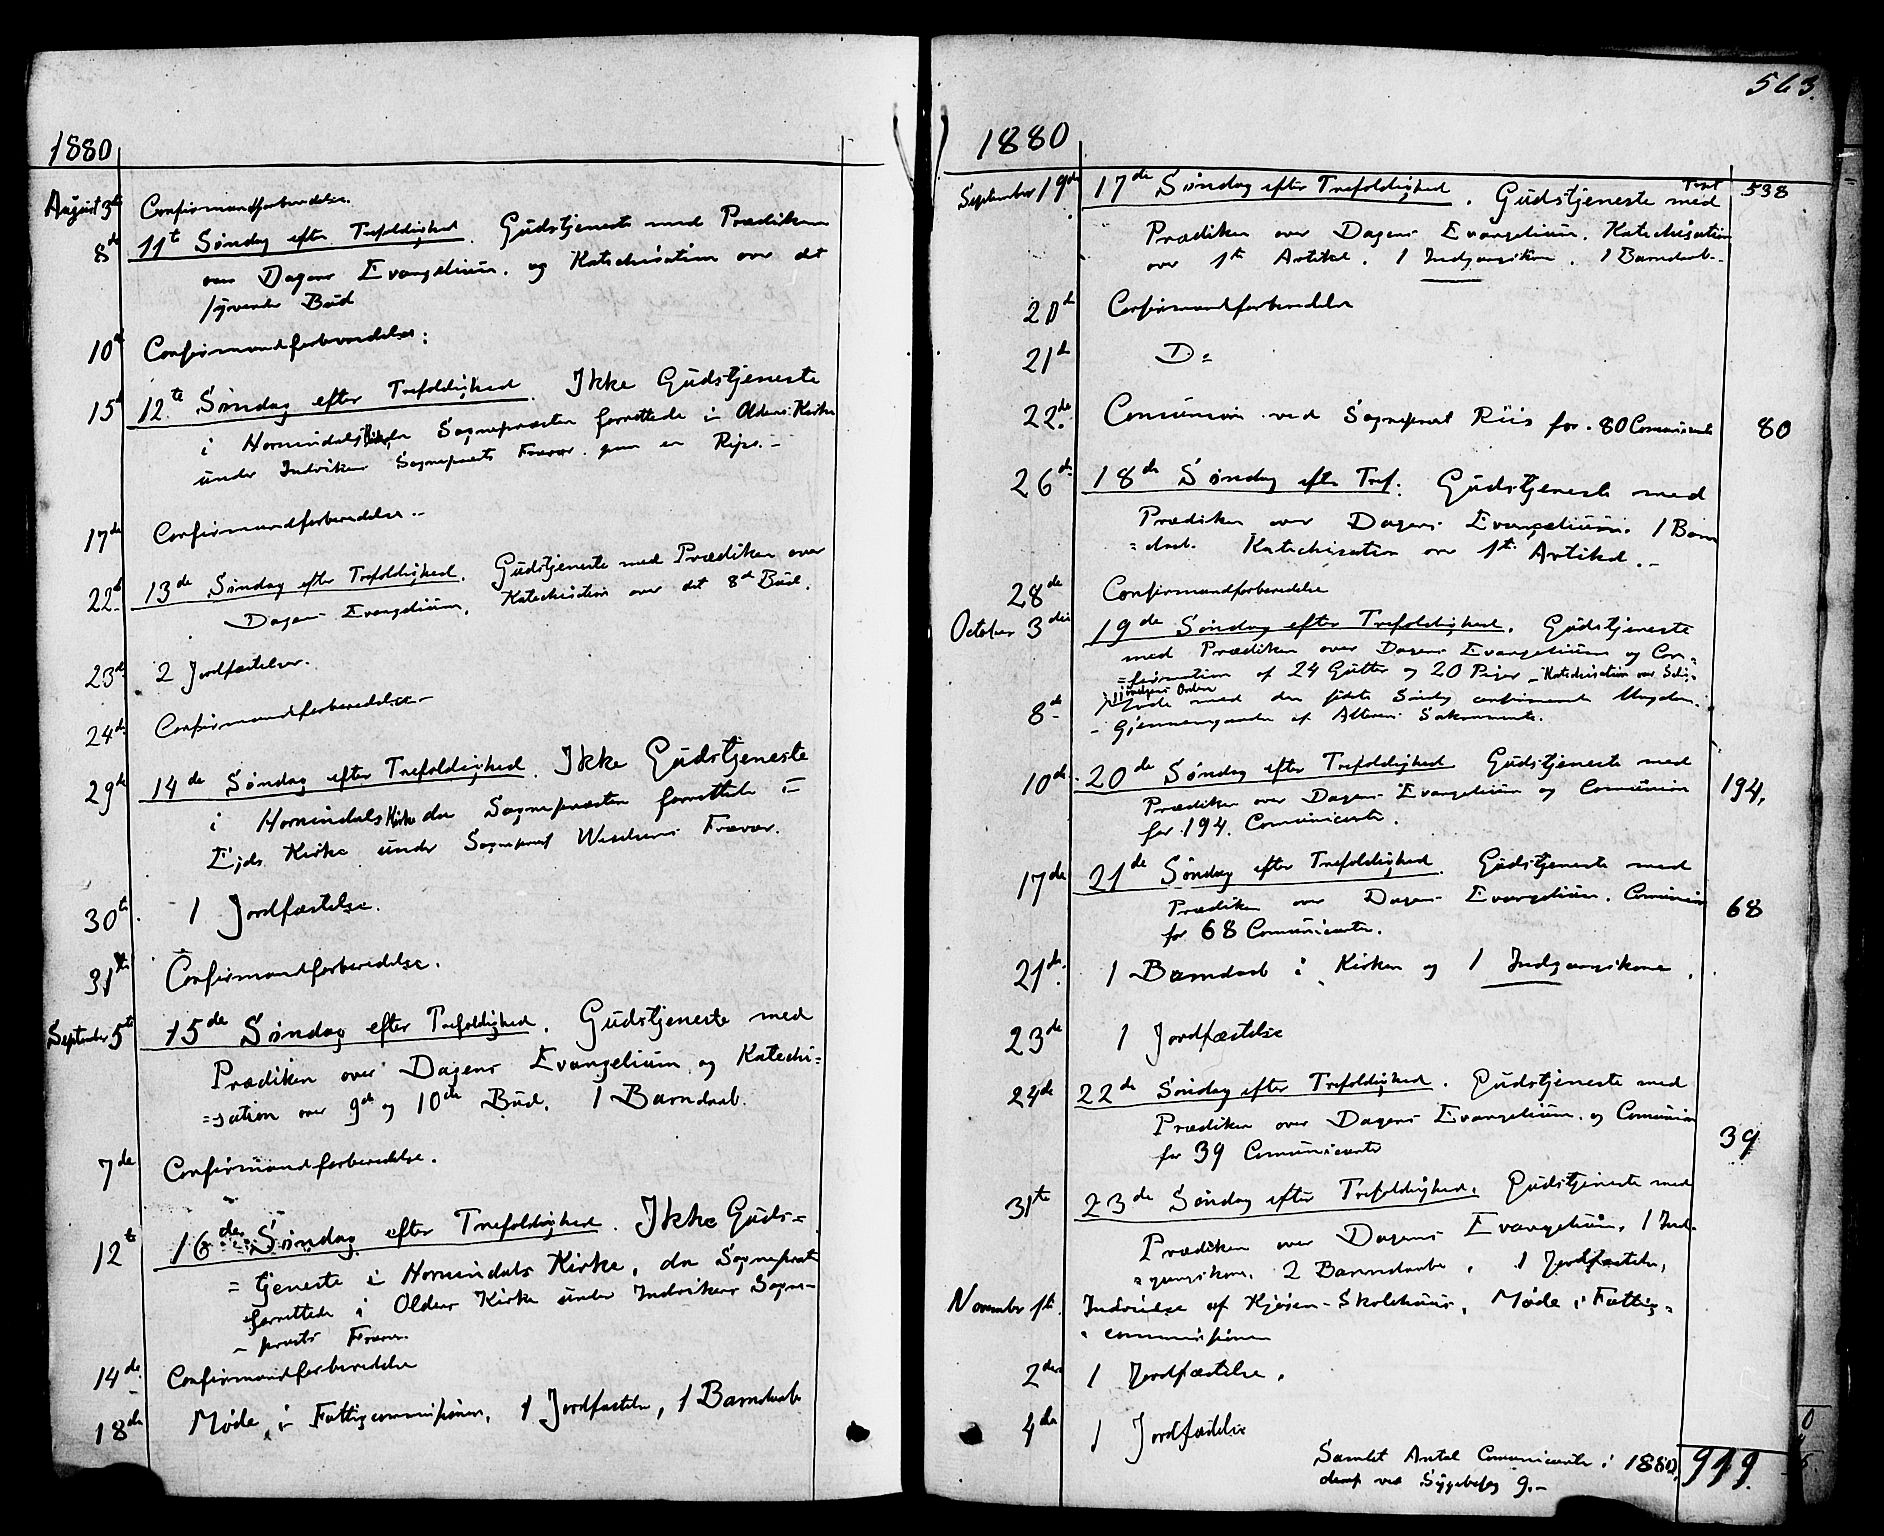 1880
August 3die Confirmandforberedelse.
8de 11te Søndag efter Trefoldighed. Gudstjeneste med Prædiken
over Dagens Evangelium, og Katechisation over det
syvende Bud
10de Confirmandforberedelse.
15de 12te Søndag efter Trefoldighed. Ikke Gudstjeneste
i Hornindals Kirke, da Sognepræsten forrettede i Olden Kirke
under Indvikens Sognepræsts Fravær
17de Confirmandforberedelse.
22de 13de Søndag efter Trefoldighed. Gudstjeneste med Prædiken over
Dagens Evangelium. Katechisation over det 8de Bud.
23de 2 Jordfæstelser.
24de Confirmandforberedelse
29de 14de Søndag efter Trefoldighed. Ikke Gudstjeneste
i Hornindals Kirke da Sognepræsten forrettede i
Ejds Kirke under Sognepræst Fravær.
30te 1 Jordfæstelse.
31te Confirmandforberedelse.
September 5te 15de Søndag efter Trefoldighed. Gudstjeneste med
Prædiken over Dagens Evangelium og Katechi=
=sation over 9de og 10de Bud. 1 Barndaab.
7de Confirmandforberedelse.
12te 16de Søndag efter Trefoldighed. Ikke Guds=
=tjeneste i Hornindals Kirke, da Sognepræsten
forrettede i Olden Kirke under Indvikens Sogne-
-præsts Fravær.
14de Confirmandforberedelse
18de Møde i Fattigcommissionen, 1 Jordfæstelse, 1 Barndaab
563.
1880
September 19de 17de Søndag efter Trefoldighed. Gudstjeneste med Trspt 538
Prædiken over Dagens Evangelium. Katechisation
over 1ste Artikel. 1 Indgangskone. 1 Barndaab.
20de Confirmandforberedelse
21de Do
22de Comunion ved Sognepræst Riis for 80 Comunicanter 80
26de 18de Søndag efter Tref. Gudstjeneste med
Prædiken over Dagens Evangelium. 1 Barn
=daab. Katechisation over 1ste Artikel.
28de Confirmandforberedelse
October 3die 19de Søndag efter Trefoldighed. Gudstjeneste
med Prædiken over Dagens Evangelium og Con=
=firmation af 24 Gutter og 20 Piger - Katechisation over Salig=
gjørelsens Orden
8de Møde med den sidste Søndag confirmerede Ungdom.
- Gjennemgaaelse af Alterens Sakramente.
10de 20de Søndag efter Trefoldighed Gudstjeneste med
Prædiken over Dagens Evangelium og Comunion 194.
for 194 Comunicanter.
17de 21de Søndag efter Trefoldighed. Gudstjeneste med
Prædiken over Dagens Evangelium. Comunion 68
for 68 Comunicanter.
21de 1 Barndaab i Kirken og 1 Indgangskone.
23de 1 Jordfæstelse
24de 22de Søndag efter Trefoldighed. Gudstjeneste med
Prædiken over Dagens Evangelium og Comunion
for 39 Comunicanter 39
31te 23de Søndag efter Trefoldighed. Gudstjeneste med
Prædiken over Dagens Evangelium. 1 Ind-
=gangskone. 2 Barndaabe, 1 Jordfæstelse.
November 1ste Indvielse af Kjøsen-Skolehuus, Møde i Fattig=
=commissionen
2den 1 Jordfæstelse.
4de 1 Jordfæstelse
Samlet Antal Comunicanter i 1880, 919.
deraf ved Sygebesøg 9.-